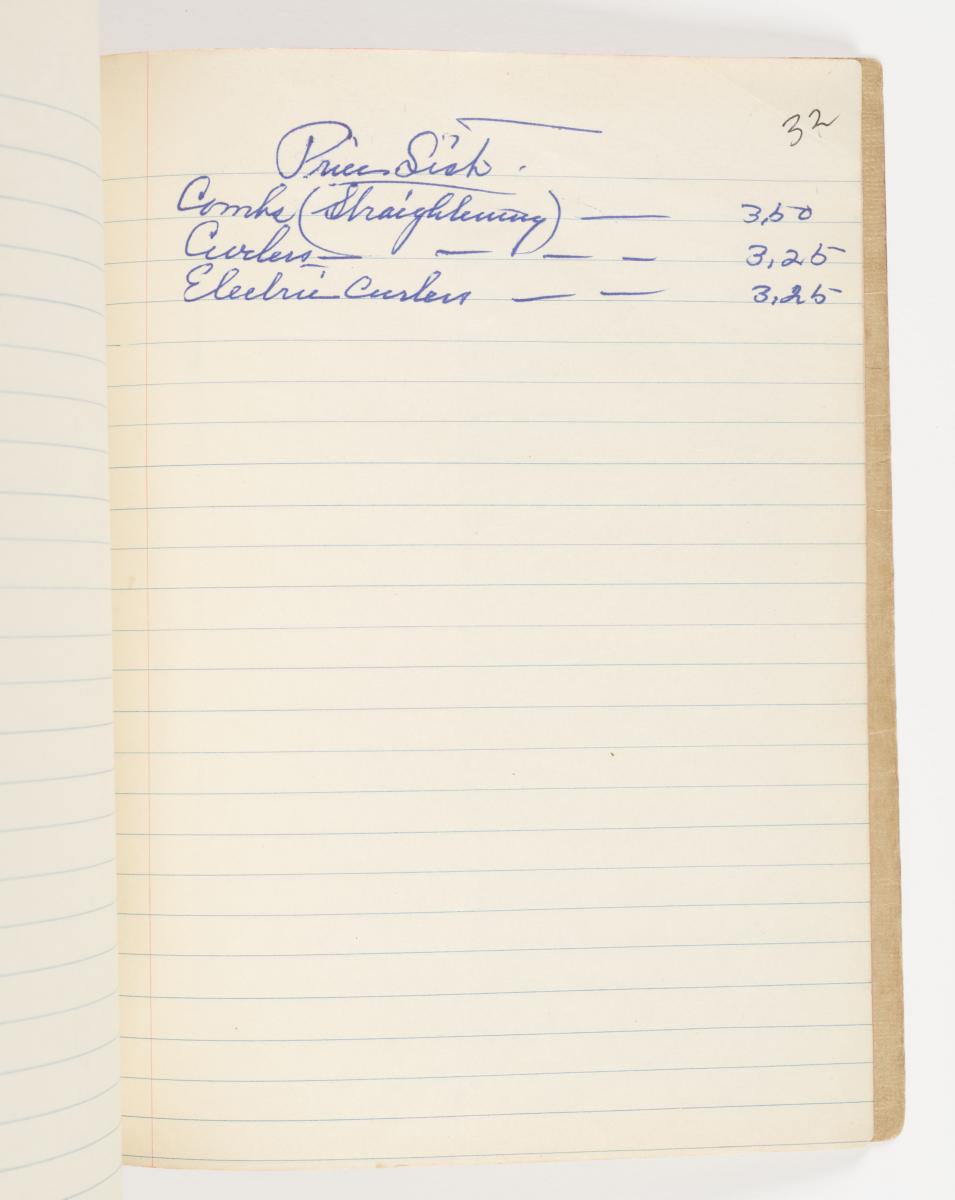 32
Price List.
Combs (Straightening) — 3,50
Curlers — — — — 3,25
Electric Curlers — — 3,25